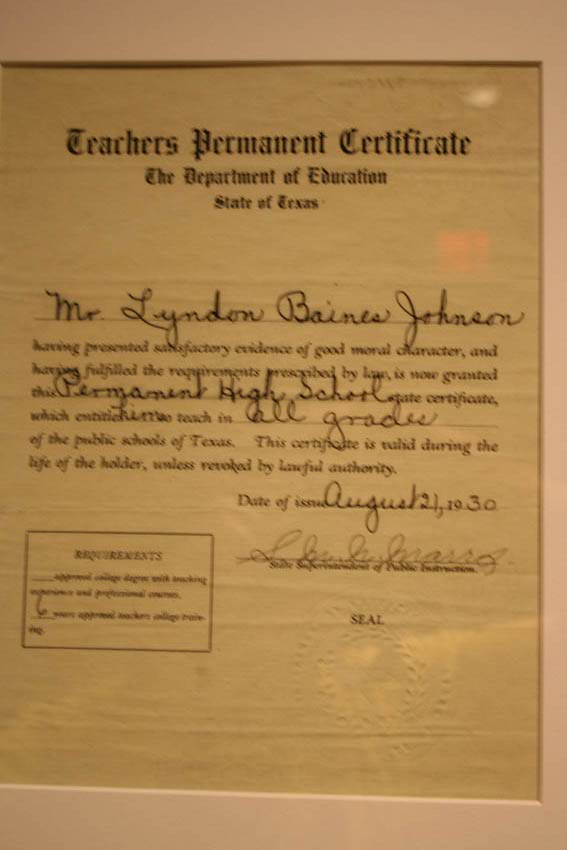 Teachers Permanent Certificate
The Department of Education
State of Texas
Mr. Lyndon Baines Johnson
having presented satisfactory evidence of good moral character, and
having fulfilled the requirements prescribed by law, is now granted
this Permanent High School state certificate,
which entitles him to teach in all grades
of the public schools of Texas. This certificate is valid during the
life of the holder, unless revoked by lawful authority.
Date of issue August 21, 1930
State Superintendent of Public Instruction.
REQUIREMENTS
approved college degree with teaching
experience and professional courses.
6 years approved teachers college train-
ing.
SEAL